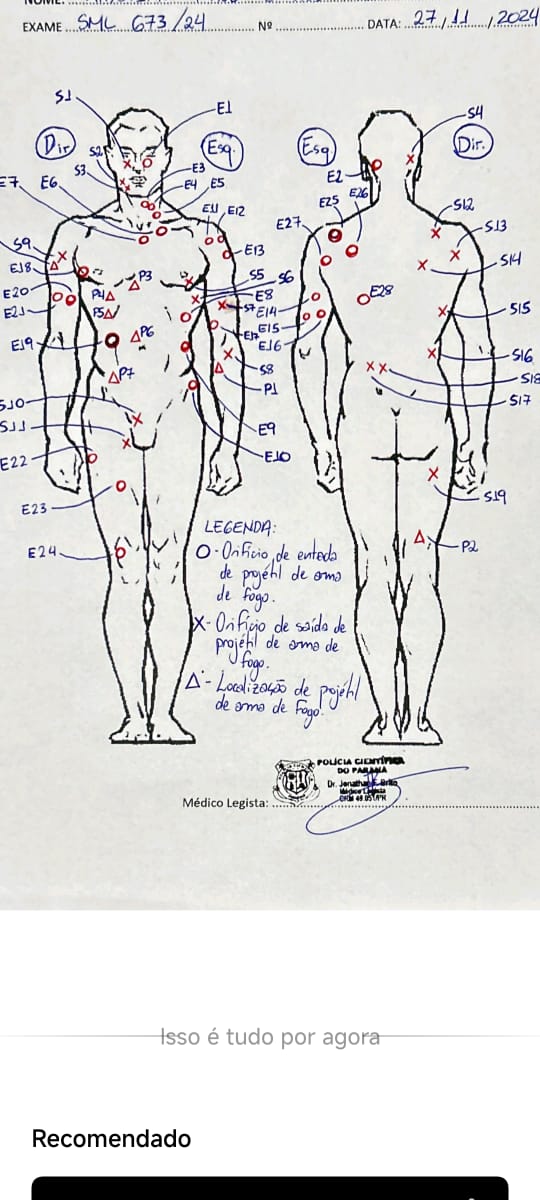 NOME:
EXAME SML 673/24 Nº DATA: 27/11/2024
S1
E1
S4
Dir
Esq.
Esq
Dir.
S2
S3
E3
E2
E7
E6
E4
E5
E26
E25
S12
E11
E12
E27
S13
S9
E13
E18
P3
S5
S6
S14
E20
P4
E8
E28
E21
P5
S7
E14
S15
E15
E17
E19
P6
E16
S16
P7
S8
S18
P1
S17
S10
S11
E9
E22
E10
S19
E23
P2
E24
LEGENDA:
O - Orifício de entrada
de projétil de arma
de fogo.
X - Orifício de saída de
projétil de arma de
fogo.
Δ - Localização de projétil
de arma de Fogo.
POLÍCIA CIENTÍFICA
DO PARANÁ
Médico Legista:
Isso é tudo por agora
Recomendado